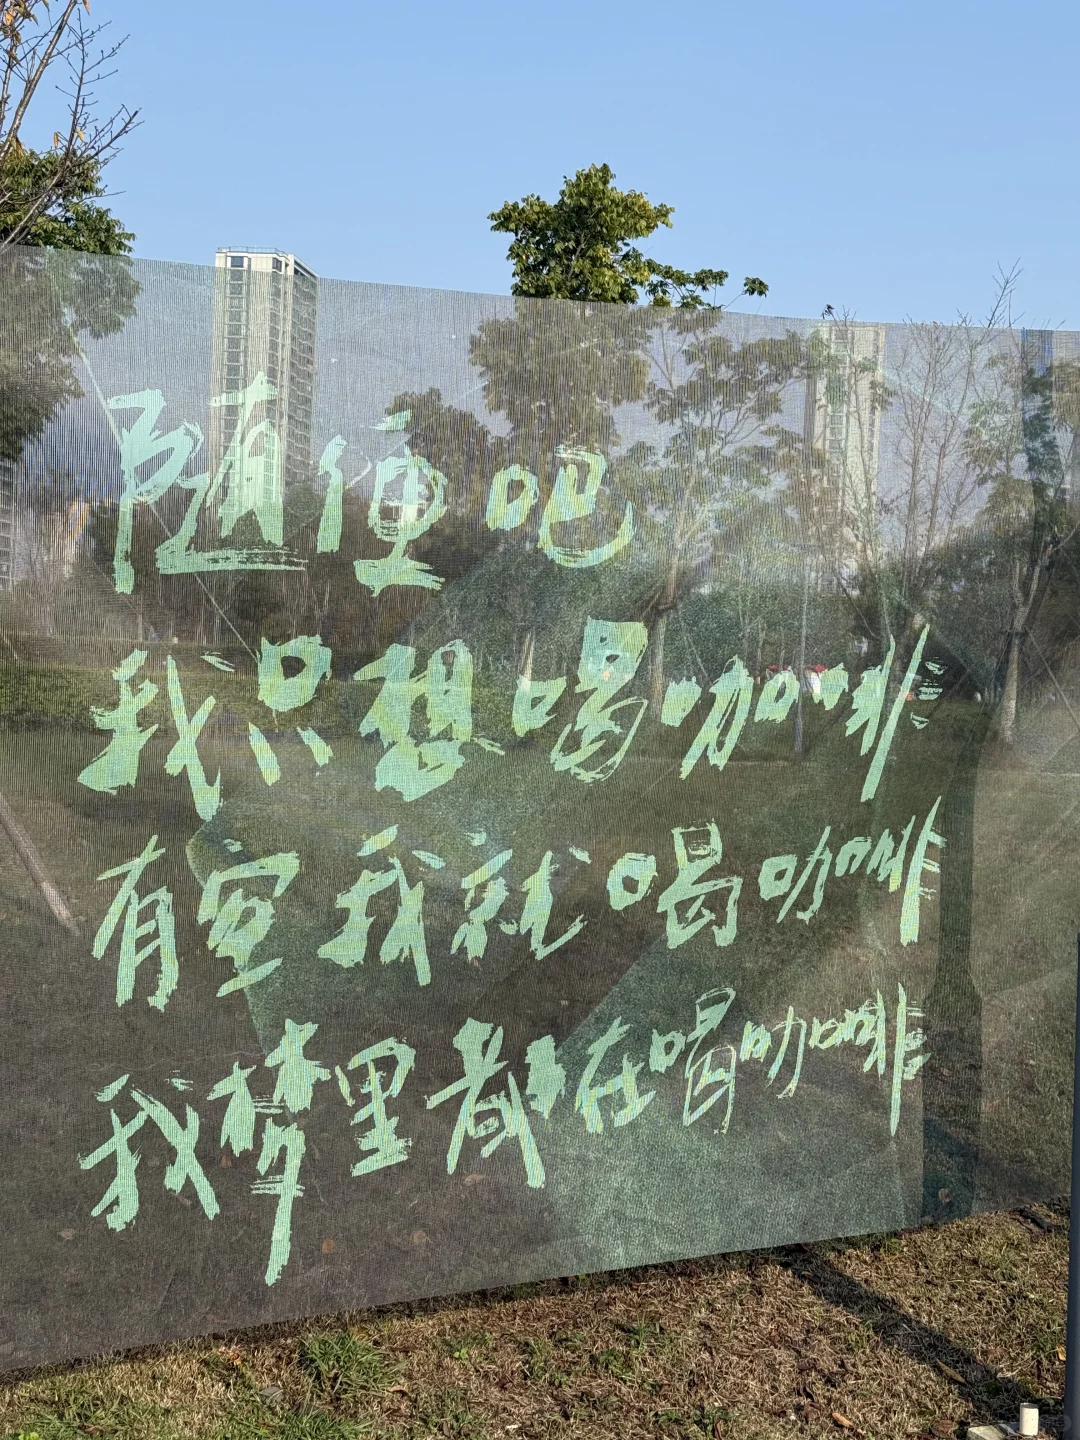 随便吧
我只想喝咖啡
有空我就喝咖啡
我梦里都在喝咖啡